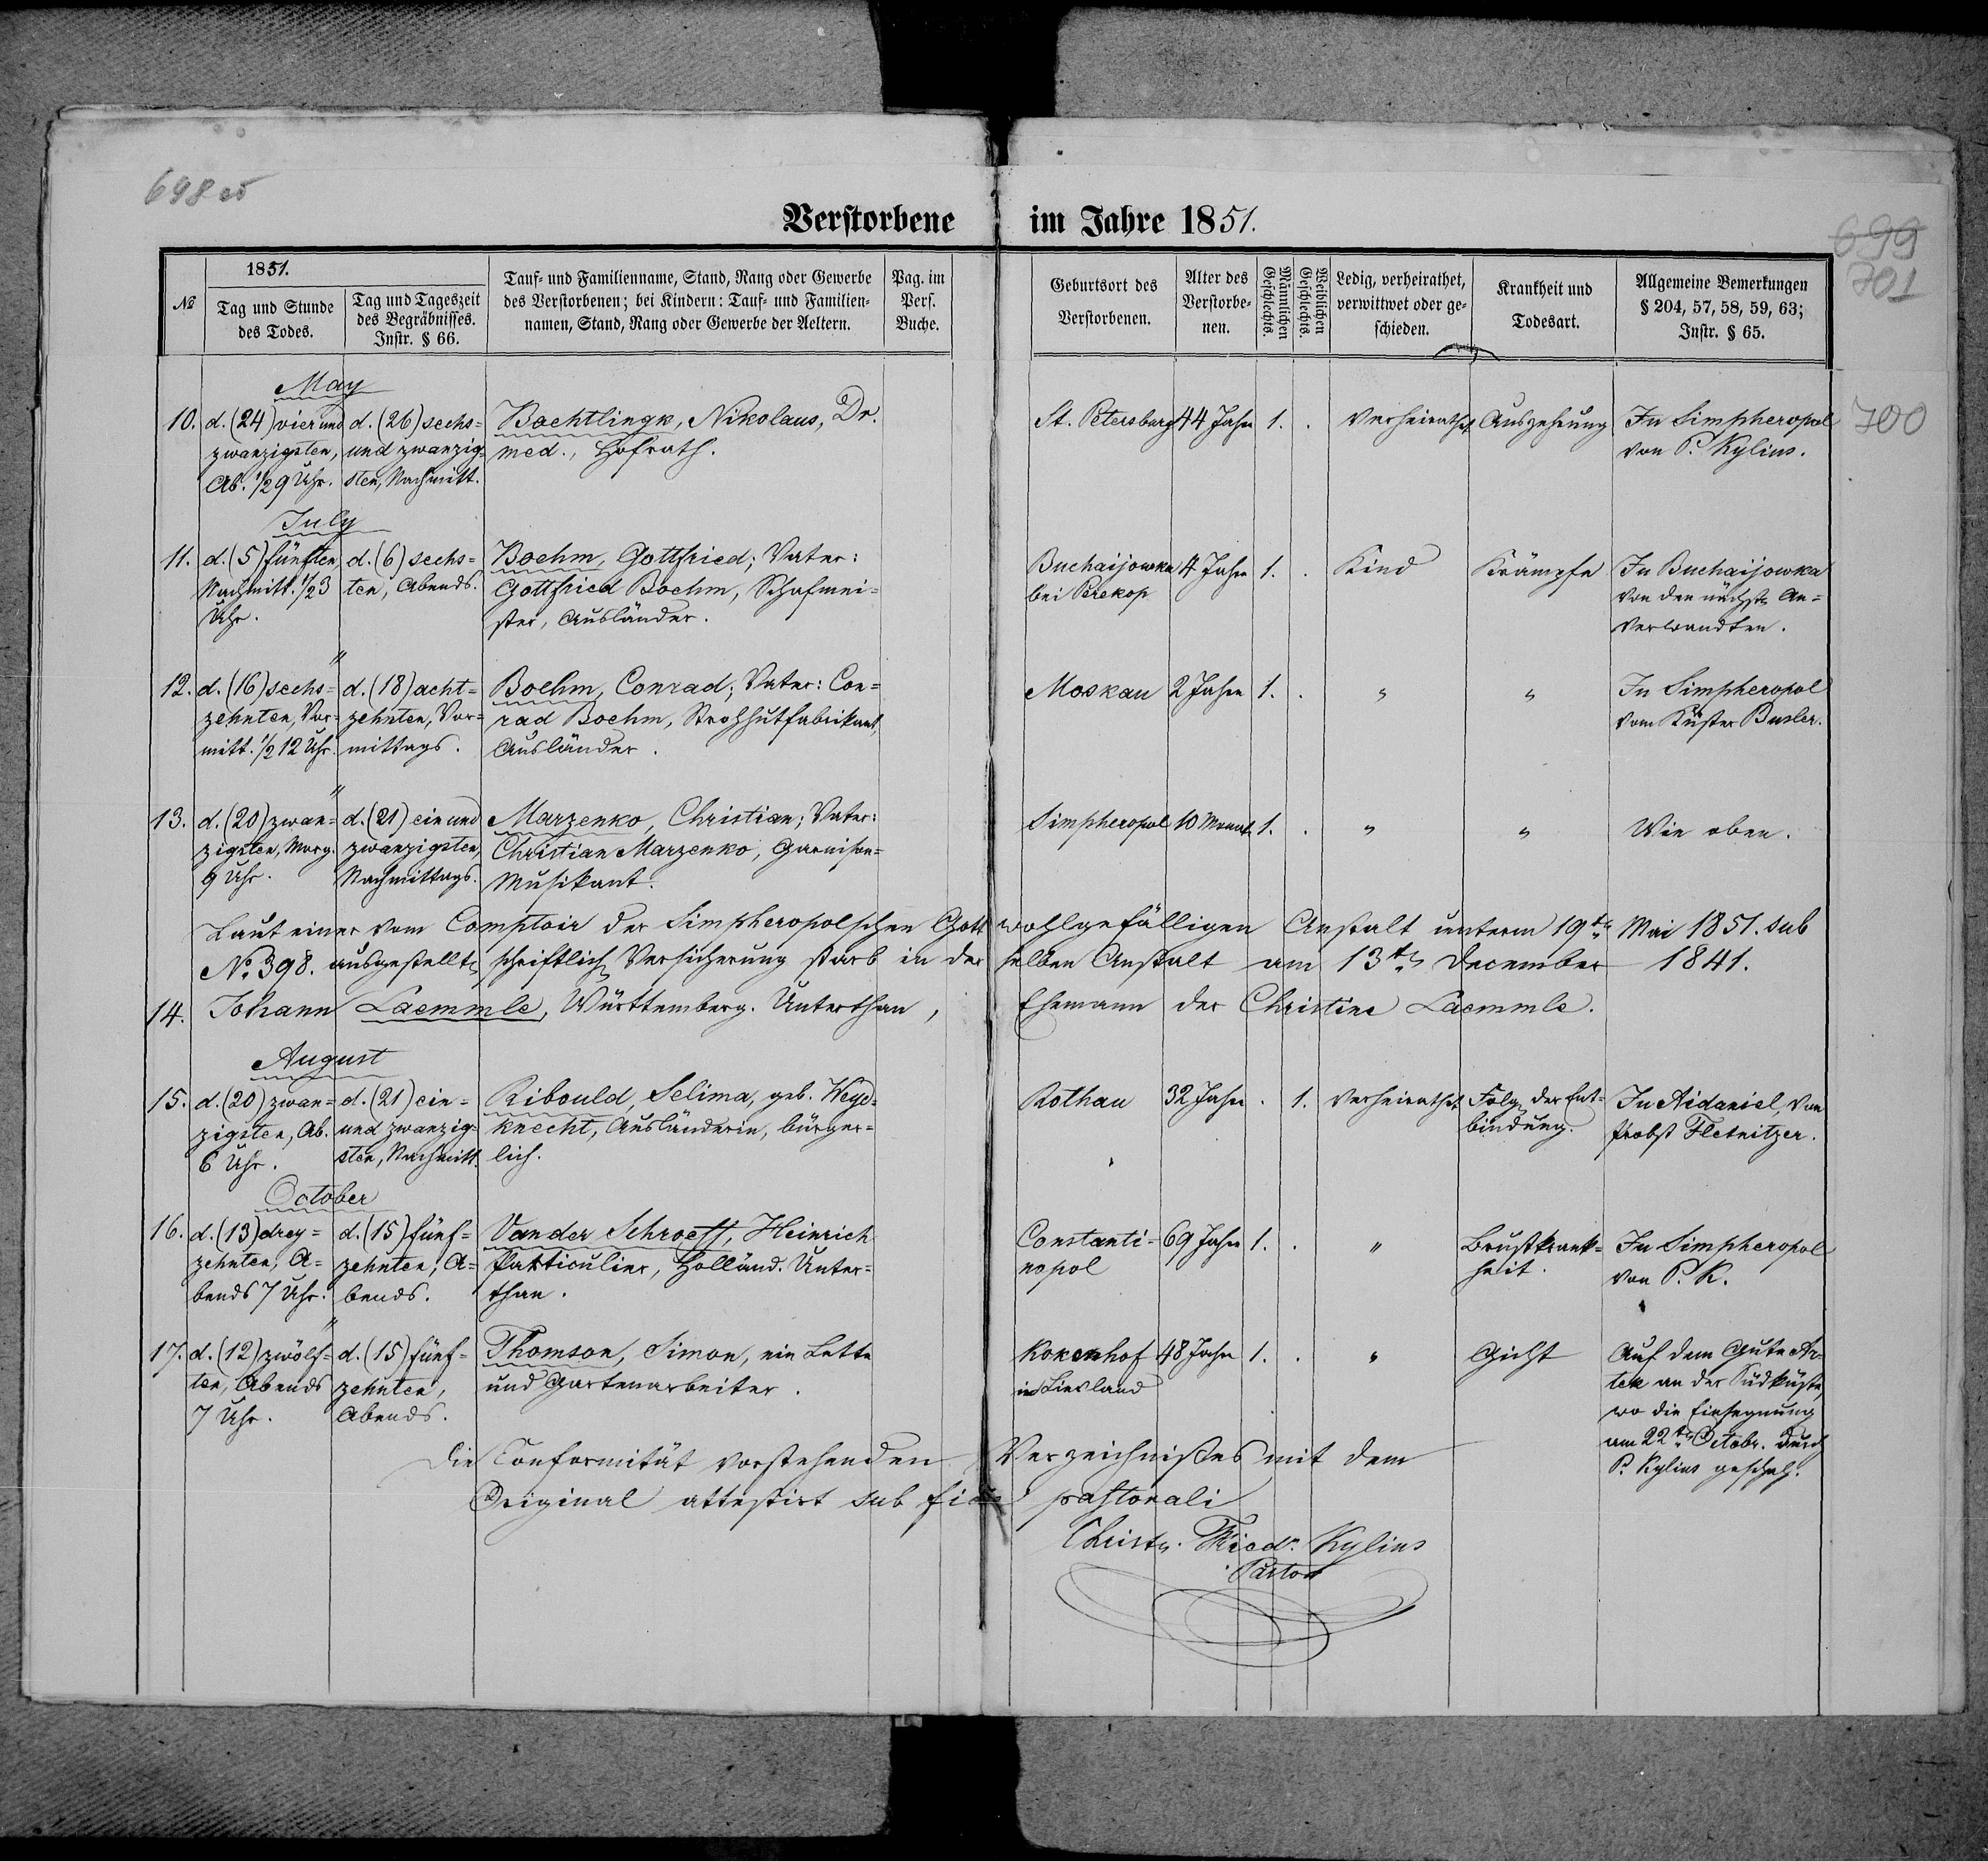 698 об
Verstorbene im Jahre 1851.
699
701
700
№
1851.
Tag und Stunde
des Todes.
Tag und Tageszeit
des Begräbnisses.
Instr. § 66.
Tauf- und Familienname, Stand, Rang oder Gewerbe
des Verstorbenen; bei Kindern: Tauf- und Familien-
namen, Stand, Rang oder Gewerbe der Aeltern.
Pag. im
Pers.
Buche.
Geburtsort des
Verstorbenen.
Alter des
Verstorbe-
nen.
Männlichen
Geschlechts.
Weiblichen
Geschlechts.
Ledig, verheirathet,
verwittwet oder ge-
schieden.
Krankheit und
Todesart.
Allgemeine Bemerkungen
§ 204, 57, 58, 59, 63;
Instr. § 65.
May
10.
d. (24) vier und
zwanzigsten,
Ab. 1/2 9 Uhr.
d. (26) sechs=
und zwanzig=
sten, Nachmitt.
Bochtlingk, Nikolaus, Dr.
med., Hofrath.
St. Petersburg
44 Jahr
1.
.
Verheirathet
Auszehrung
In Simpheropol
von P. Kylius.
July
11.
d. (5) fünften
Nachmitt. 1/2 3
Uhr.
d. (6) sechs=
ten, Abends.
Boehm, Gottfried; Vater:
Gottfried Boehm, Schafmei=
ster, Ausländer.
Buchaijowka
bei Perekop
4 Jahr
1.
.
Kind
Krämpfe
In Buchaijowka
von den nächsten An=
verwandten.
"
12.
d. (16) sechs=
zehnten, Vor=
mitt. 1/2 12 Uhr.
d. (18) acht=
zehnten, Vor=
mittags.
Boehm, Conrad; Vater: Con=
rad Boehm, Strohhutfabrikant,
Ausländer.
Moskau
2 Jahre
1.
.
"
"
In Simpheropol
vom Küster Busler.
"
13.
d. (20) zwan=
zigsten, Morg.
9 Uhr.
d. (21) ein und
zwanzigsten,
Nachmittags.
Marzenko, Christian; Vater:
Christian Marzenko, Garnison=
Musikant.
Simpheropol
10 Monat
1.
.
"
"
Wie oben.
Laut einer vom Comptoir der Simpheropolschen Gott wohlgefälligen Anstalt unterm 19ten Mai 1851. sub
No 398. ausgestellten schriftlichen Versicherung starb in der selben Anstalt am 13ten December 1841.
14. Johann Laemmle, Württemberg. Unterthan, Ehemann der Christine Laemmle.
August
15.
d. (20) zwan=
zigsten, Ab.
6 Uhr.
d. (21) ein=
und zwanzig=
sten, Nachmitt.
Ribould, Selima, geb. Weyd=
knecht, Ausländerin, bürger=
lich.
Rothau
32 Jahre
.
1.
Verheirathet
Folgen der Ent=
bindung.
In Aidaniel, von
Probst Fletnitzer.
October
16.
d. (13) drey=
zehnten, A=
bends 7 Uhr.
d. (15) fünf=
zehnten, A=
bends.
Van der Schroeff, Heinrich
Partikulier, Holländ. Unter=
than.
Constanti=
nopol
69 Jahr
1.
.
"
Brustkrank=
heit.
In Simpheropol
von P. K.
"
17.
d. (12) zwölf=
ten, Abends
7 Uhr.
d. (15) fünf=
zehnten,
Abends.
Thomson, Simon, ein Lette
und Gartenarbeiter.
Kokenhof
in Livland
48 Jahr
1.
.
"
Gicht
Auf dem Gute Ar=
tek an der Südküste,
wo die Einsegnung
am 22ten Octobr. durch
P. Kylius geschah.
Die Conformität vorstehenden Verzeichnißes mit dem
Original attestirt sub fide pastorali
Christn. Friedr. Kylius
Pastor